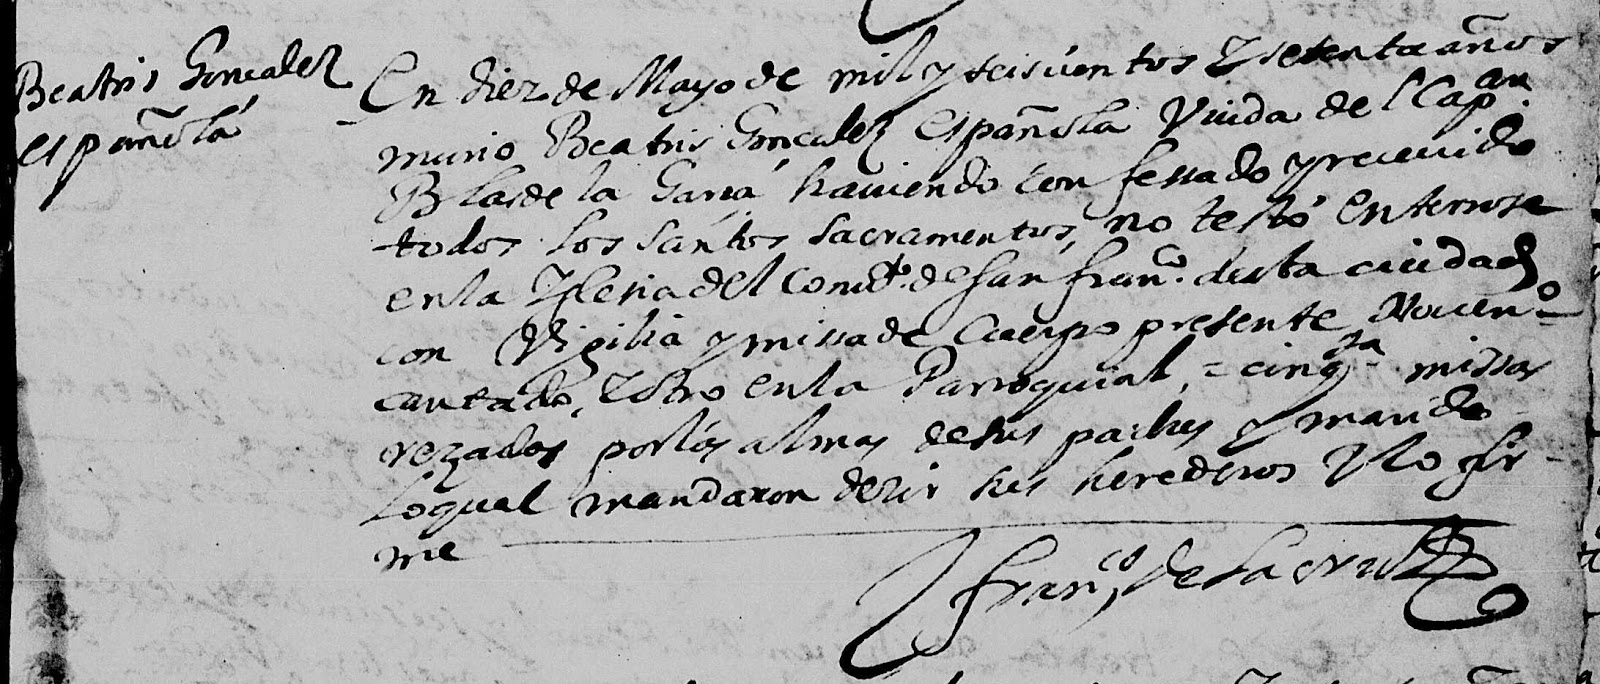 Beatris Goncalez
española
En diez de Mayo de mil y seiscientos y setenta años
murio Beatris Goncalez española Viuda del Capan.
Blas de la Garça haviendo confessado y recevido
todos los santos sacramentos, no testó enterrose
en la Yglesia del convto. de san franco. desta ciudad
con Vigilia y missa de cuerpo presente Noveno.
cantado, y otro en la Parroquial, = cinqta. missas
rezados por las almas de sus padres y marido
lo qual mandaron dezir sus herederos y lo fir-
me
franco. de la cruz